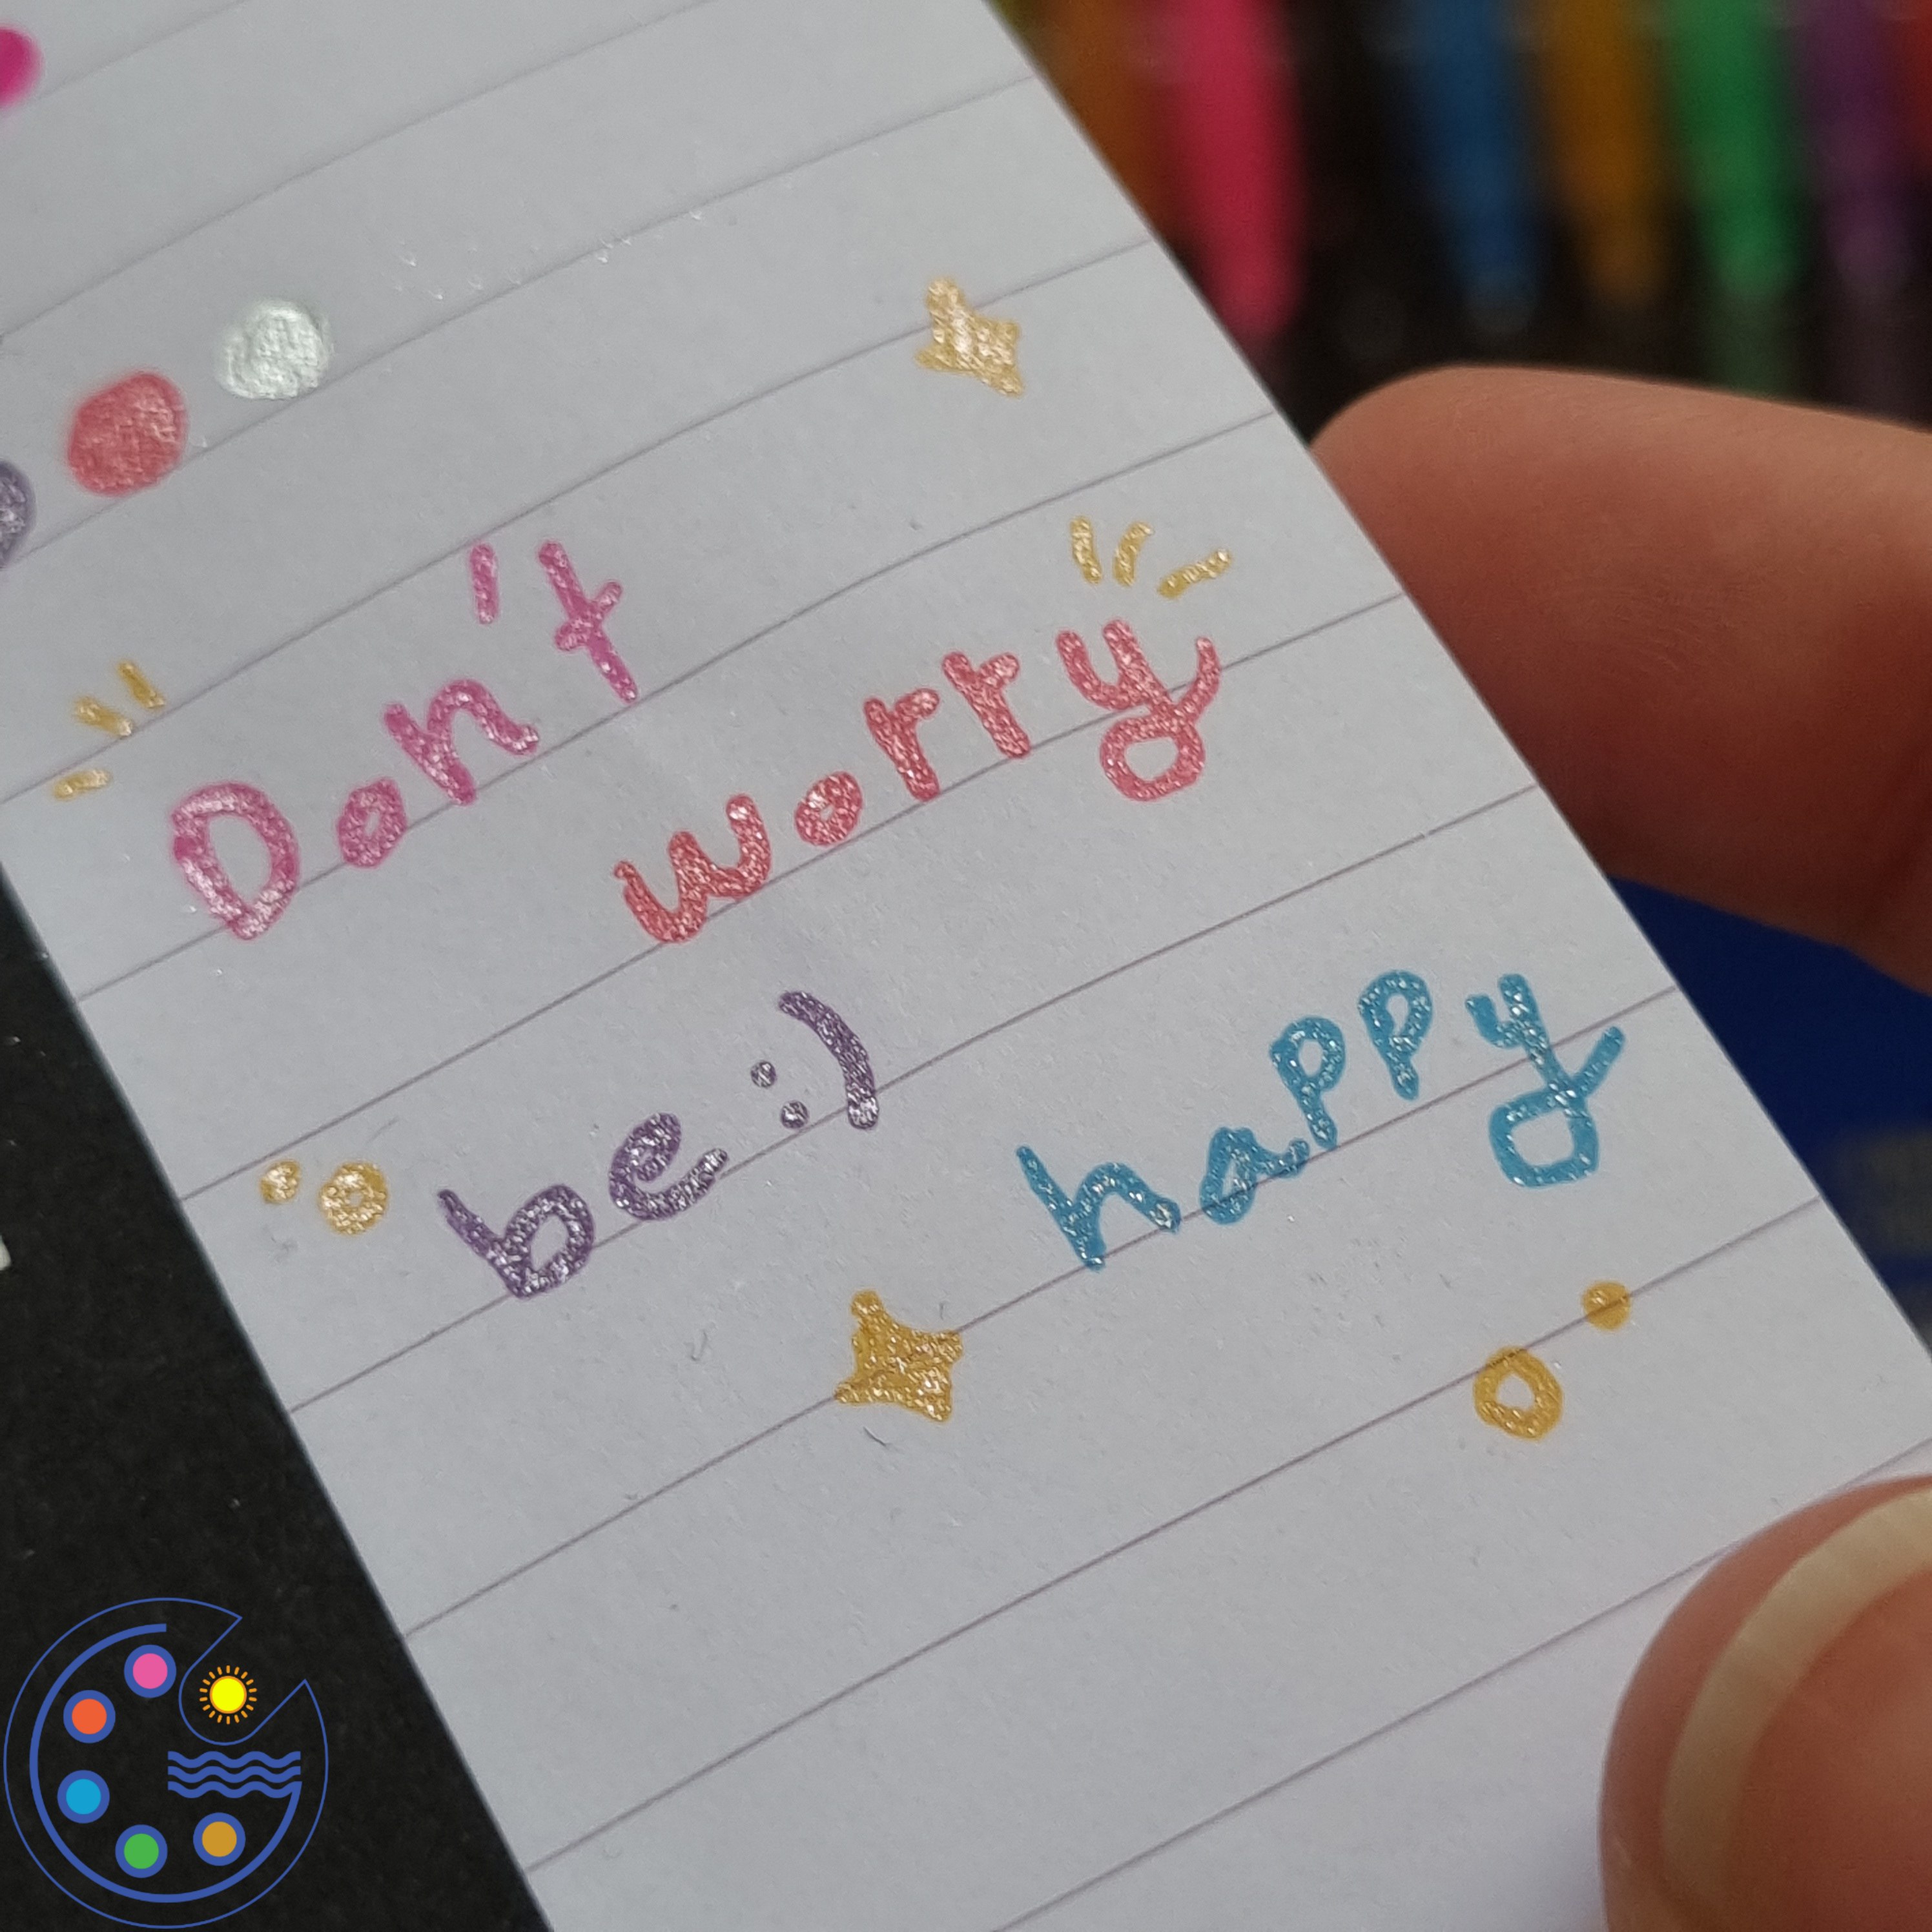 Don't worry
be :) happy